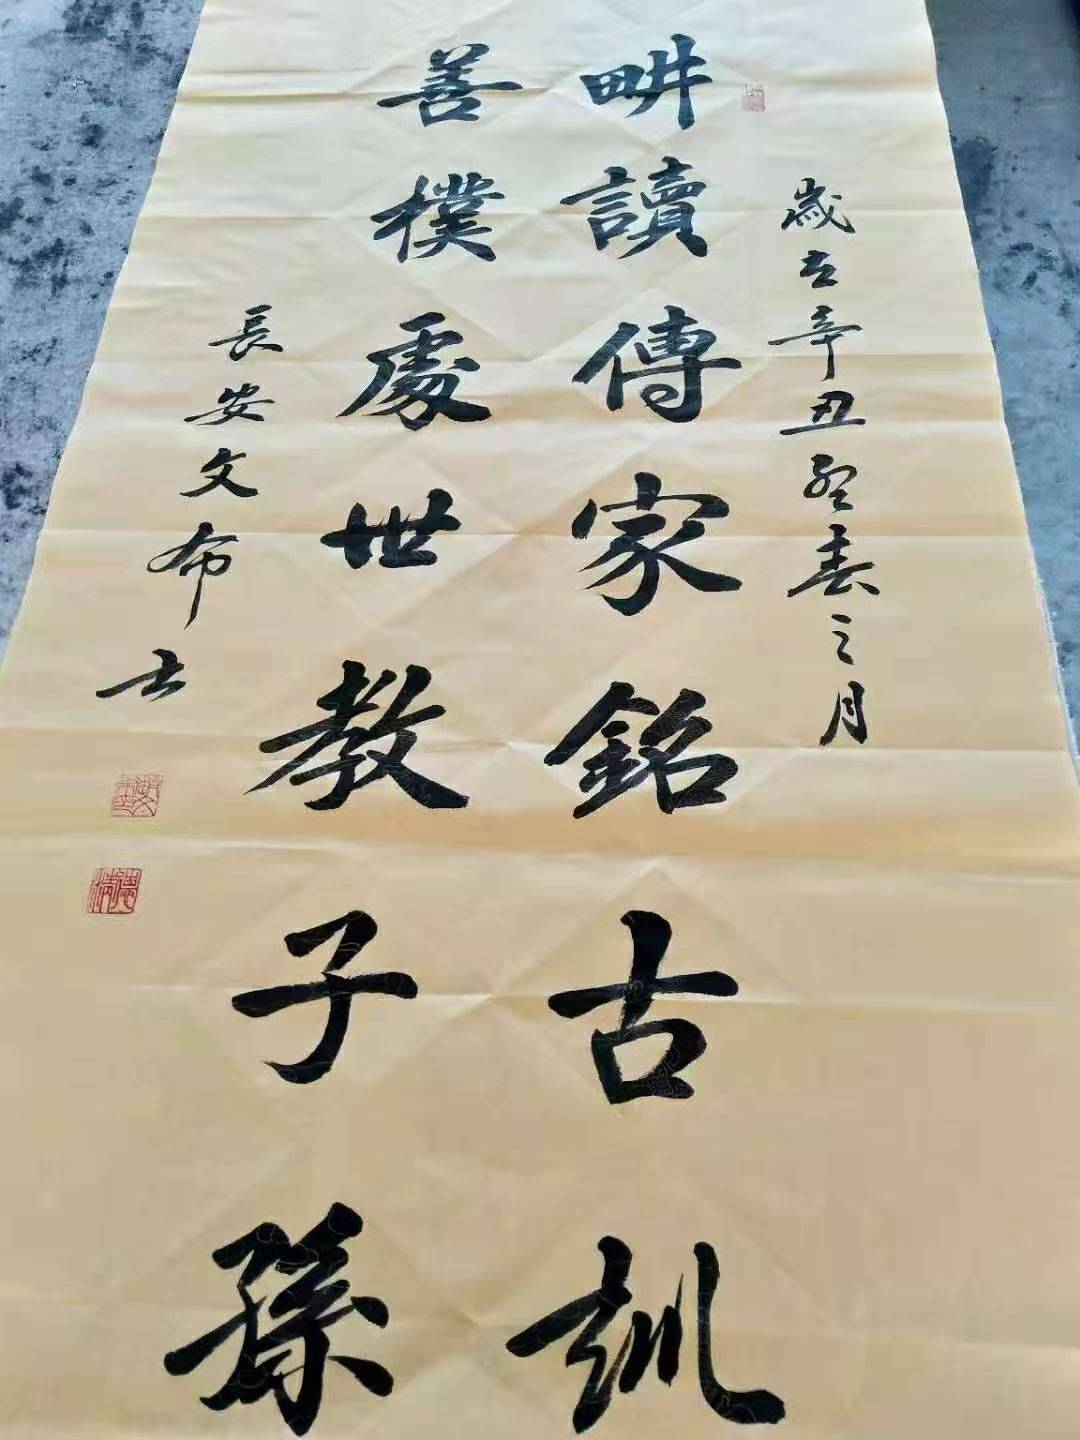 歲在辛丑孟春之月
畊讀傳家銘古訓
善樸處世教子孫
長安文布士